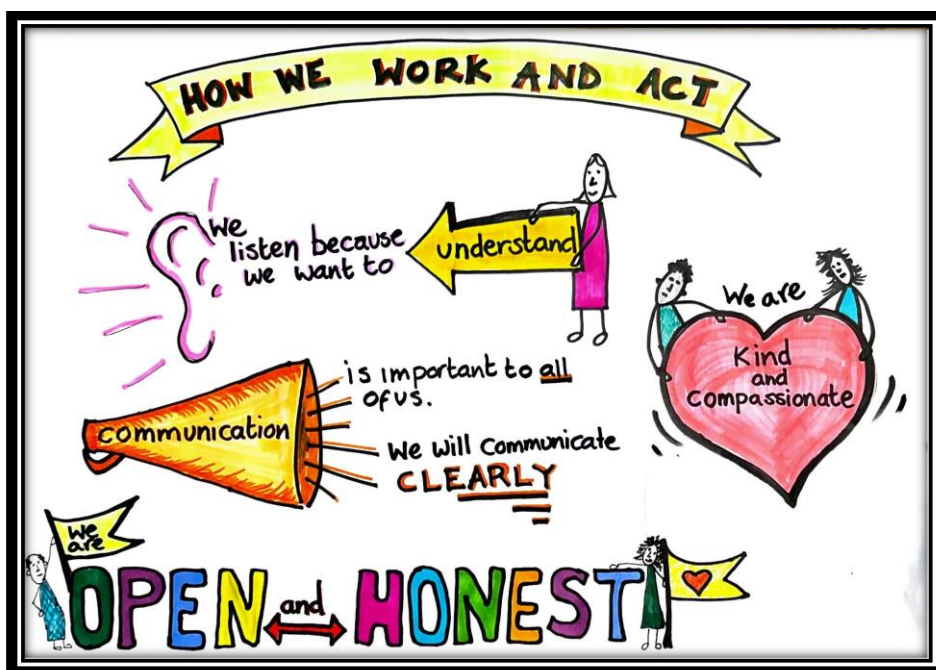 HOW WE WORK AND ACT
We
listen because
we want to
understand
We are
Kind
and
Compassionate
communication
is important to all
of us.
We will communicate
CLEARLY
We
are
OPEN and HONEST